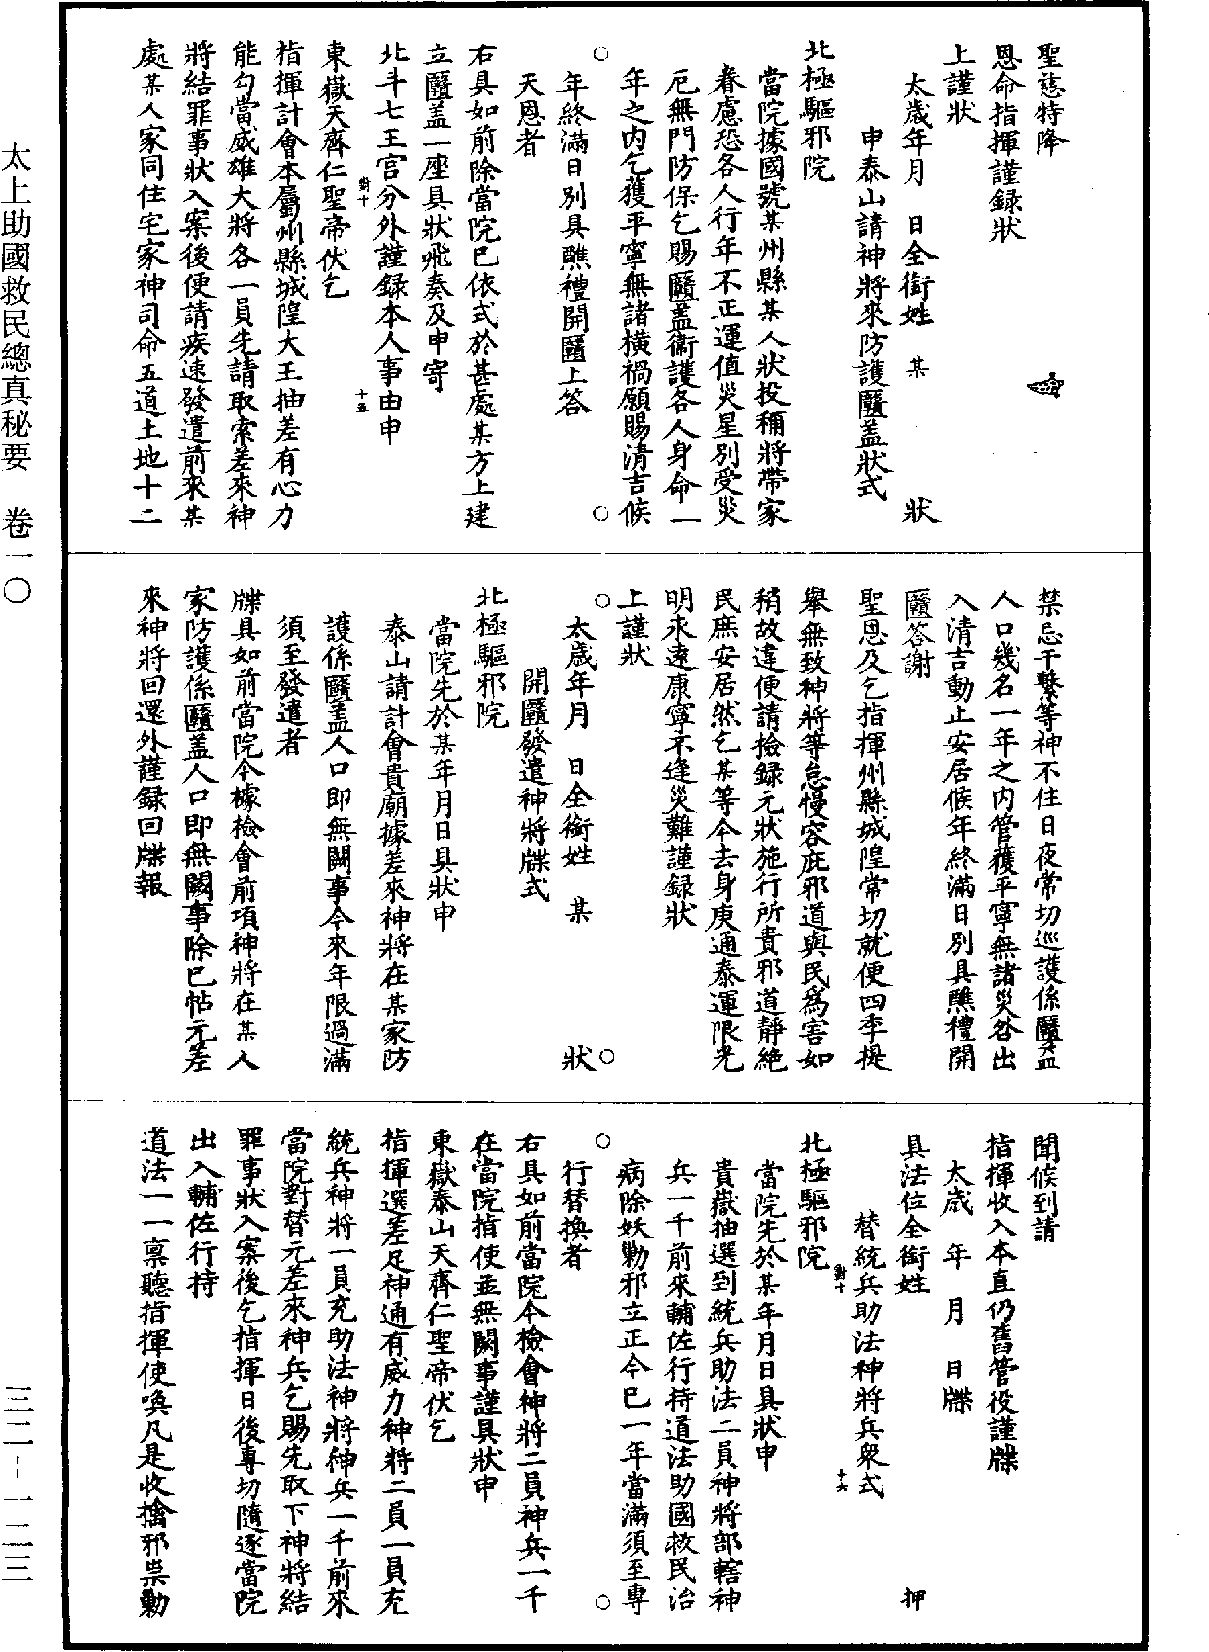 太上助國救民總真秘要　卷一〇
三二-一二三
聖慈特降
恩命指揮謹錄狀
上謹狀
太歲年月　日全銜姓　某　狀
申泰山請神將來防護匶蓋狀式
北極驅邪院
當院據國號某州縣某人狀投稱將帶家
眷慮恐各人行年不正運值災星別受災
厄無門防保乞賜匶蓋衞護各人身命一
年之内乞獲平寧無諸橫禍願賜清吉候
年終滿日別具醮禮開匶上答
天恩者
右具如前除當院已依式於甚處某方上建
立匶蓋一座具狀飛奏及申寄
北斗七王宫分外謹録本人事由申
對十　十五
東嶽天齊仁聖帝伏乞
指揮計會本屬州縣城隍大王抽差有心力
能勾當威雄大將各一員先請取索差來神
將結罪事狀入案後便請疾速發遣前來某
處某人家同住宅家神司命五道土地十二
禁忌干繫等神不住日夜常切巡護係匶蓋
人口幾名一年之内管獲平寧無諸災咎出
入清吉動止安居候年終滿日別具醮禮開
匶答謝
聖恩及乞指揮州縣城隍常切就便四季提
舉無致神將等怠慢容庇邪道與民爲害如
稍故違便請撿録元狀施行所貴邪道靜絶
民庶安居然乞某等今去身庚通泰運限光
明永遠康寧不逢災難謹録狀
上謹狀
太歲年月　日全銜姓　某　狀
開匶發遣神將牒式
北極驅邪院
當院先於某年月日具狀申
泰山請計會貴廟據差來神將在某家防
護係匶蓋人口即無闕事今來年限過滿
須至發遣者
牒具如前當院今據檢會前項神將在某人
家防護係匶蓋人口即無闕事除已帖元差
來神將回還外謹録回牒報
聞候到請
指揮收入本直仍舊管役謹牒
太歲　年　月　日牒
具法位全銜姓　押
替統兵助法神將兵衆式
對十　十六
北極驅邪院
當院先於某年月日具狀申
貴嶽抽選到統兵助法二員神將部轄神
兵一千前來輔佐行持道法助國救民治
病除妖勦邪立正今已一年當滿須至專
行替換者
右具如前當院今檢會神將二員神兵一千
在當院指使並無闕事謹具狀申
東嶽泰山天齊仁聖帝伏乞
指揮選差足神通有威力神將二員一員充
統兵神將一員充助法神將神兵一千前來
當院對替元差來神兵乞賜先取下神將結
罪事狀入案後乞指揮日後專切隨逐當院
出入輔佐行持
道法一一稟聽指揮使喚凡是收擒邪祟勦